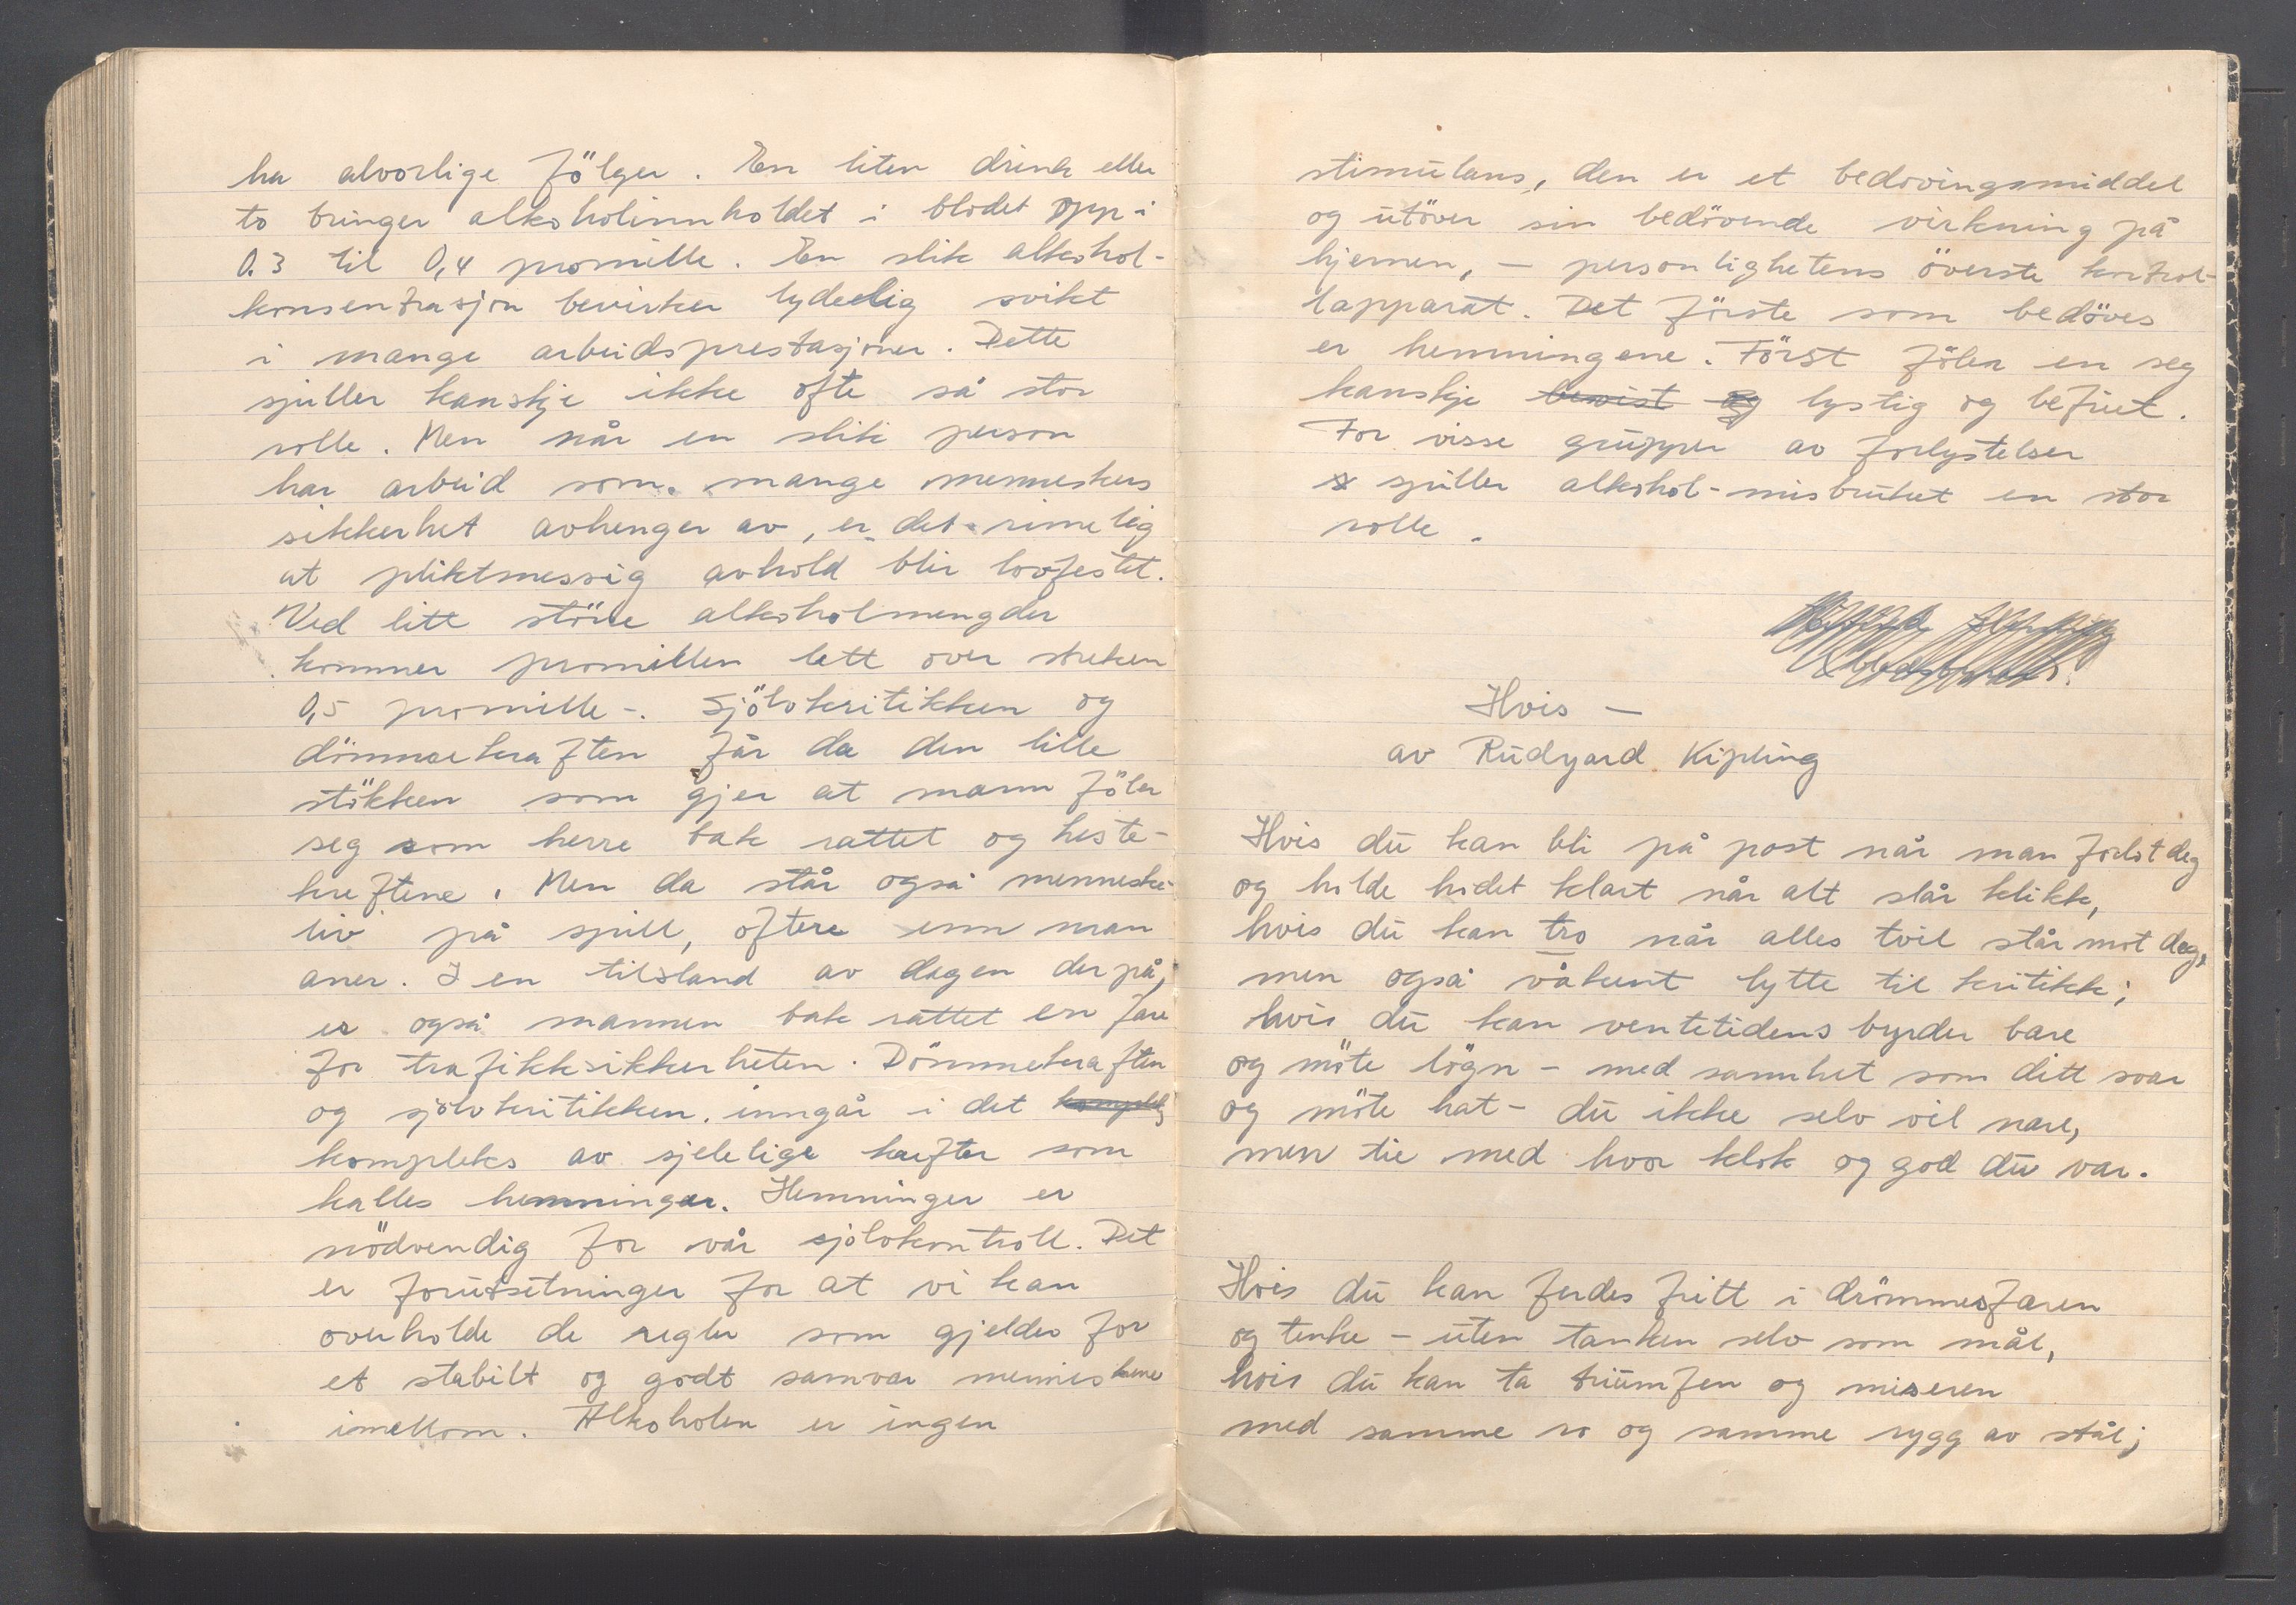 ha alvorlige fölger. En liten drink eller
to bringer alkoholinnholdet i blodet opp i
0.3 til 0,4 promille. En slik alkohol-
konsentrasjon bevirker tydeelig svikt
i mange arbeidsprestasjoner. Dette
spiller kanskje ikke ofte så stor
rolle. Men når en slik person
har arbeid som mange menneskers
sikkerhet avhenger av, er det rimelig
at pliktmessig avhold blir lovfestet.
Ved litt störe alkoholmengder
kommer promillen lett over streken
0,5 promille-. Sjölvkritikken og
dömmerkraften får da den lille
stökken som gjer at mann föler
seg som herre bak rattet og heste-
kreftene. Men da står også menneske-
liv på spill, oftere enn man
aner. I en tilstand av dagen derpå,
er også mannen bak rattet en fare
for trafikksikkerheten. Dömmekraften
og sjölvkritikken inngår i det
kompleks av sjelelige krefter som
kalles hemninger. Hemninger er
nödvendig for vår sjölvkontroll. Det
er forutsetninger for at vi kan
overholde de regler som gjelder for
et stabilt og godt samvær menneskene
imellom. Alkoholen er ingen
stimulans, den er et bedövingsmiddel
og utöver sin bedövende virkning på
hjernen, - personlighetens överste kontrol-
lapparat. Det förste som bedöves
er hemningene. Först föler en seg
kanskje bevist og lystig og befriet.
For visse grupper av forlystelser
s spiller alkohol-misbruket en stor
rolle.
Hvis -
av Rudyard Kipling
Hvis du kan bli på post når man forlot deg
og holde hodet klart når alt slår klikk,
hvis du kan tro når alles tvil står mot deg,
men også våkent lytte til kritikk;
hvis du kan ventetidens byrder bære
og möte lögn - med sannhet som ditt svar
og möte hat - du ikke selv vil nære,
men tie med hvor klok og god du var.
Hvis du kan ferdes fritt i drömmesfæren
og tenke - uten tanken selv som mål,
hvis du kan ta triumfen og miseren
med samme ro og samme rygg av stål;